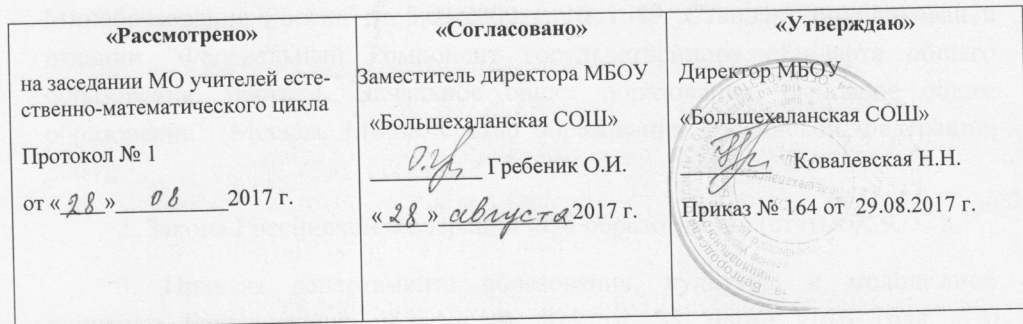 «Рассмотрено»
на заседании МО учителей есте-
ственно-математического цикла
Протокол № 1
от «28» 08 2017 г.
«Согласовано»
Заместитель директора МБОУ
«Большехаланская СОШ»
Гребеник О.И.
«28» августа 2017 г.
«Утверждаю»
Директор МБОУ
«Большехаланская СОШ»
Ковалевская Н.Н.
Приказ № 164 от 29.08.2017 г.